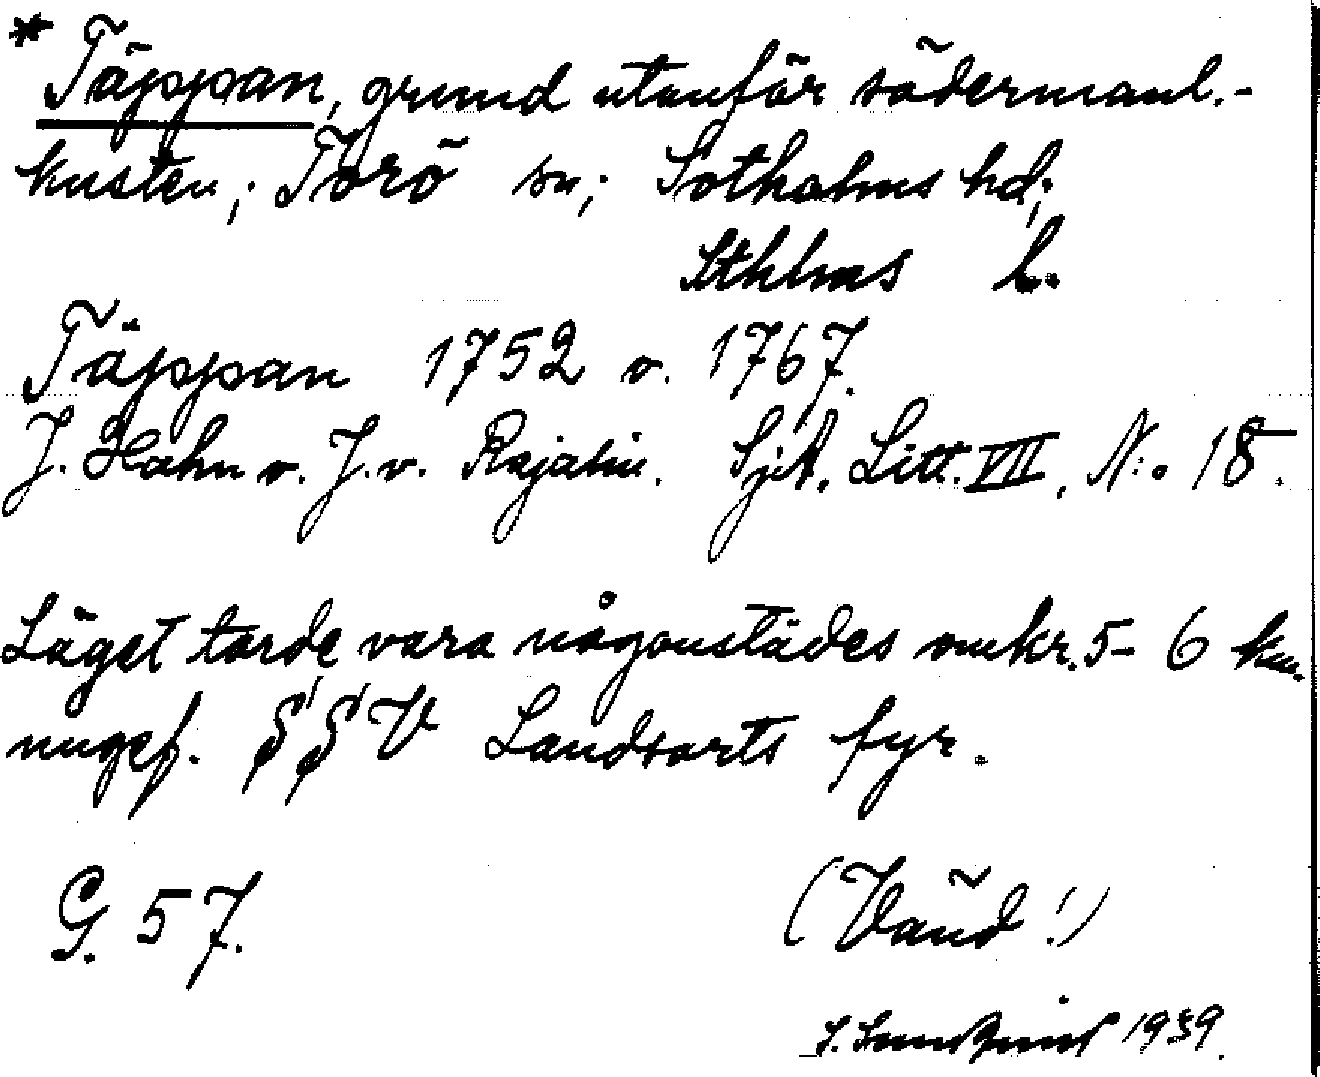 * Täppan, grund utanför södermanl.-
kusten; Torö sn; Sotholms hd;
Sthlms l.
Täppan 1752 o. 1767.
J. Hahn o. J. v. Rajalin. SjA. Litt. VII, N:o 18.
Läget torde vara någonstädes omkr. 5-6 km.
ungef. S S V Landsorts fyr.
G. 57.
(Vänd!)
1939.